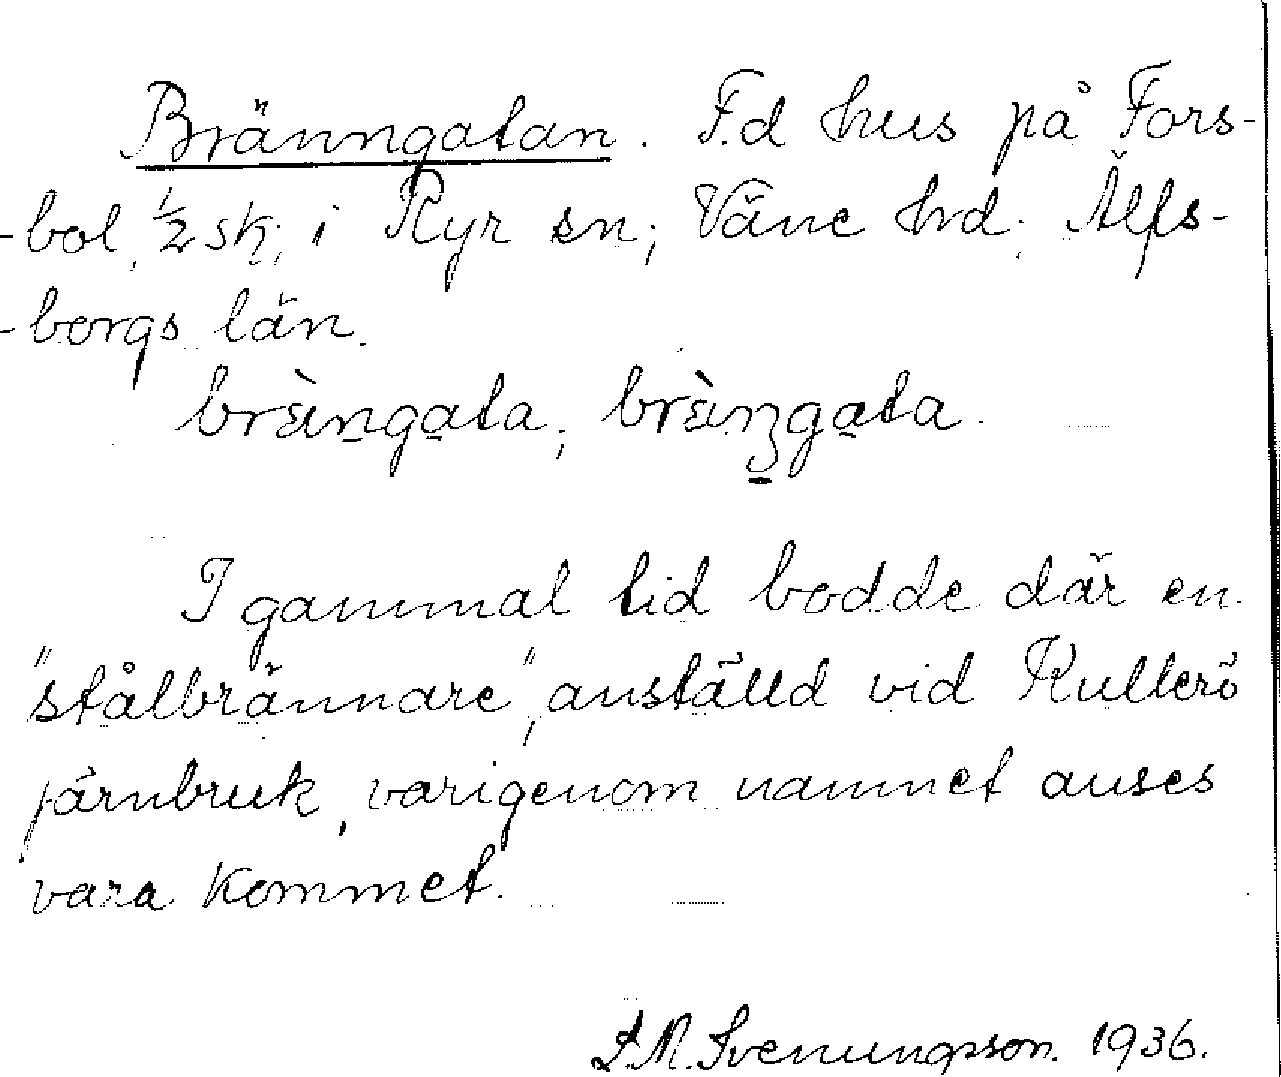 Bränngatan. F.d hus på Fors-
-bol, 1/2 sk; i Ryr sn; Väne hrd; Älfs-
-borgs län.
I gammal tid bodde där en
"stålbrännare", anställd vid Kollerö
järnbruk, varigenom namnet anses
vara kommet.
Svenungsson. 1936.